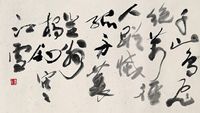 千山鳥飛
絕萬徑
人蹤滅
孤舟蓑
笠翁
獨釣寒
江雪